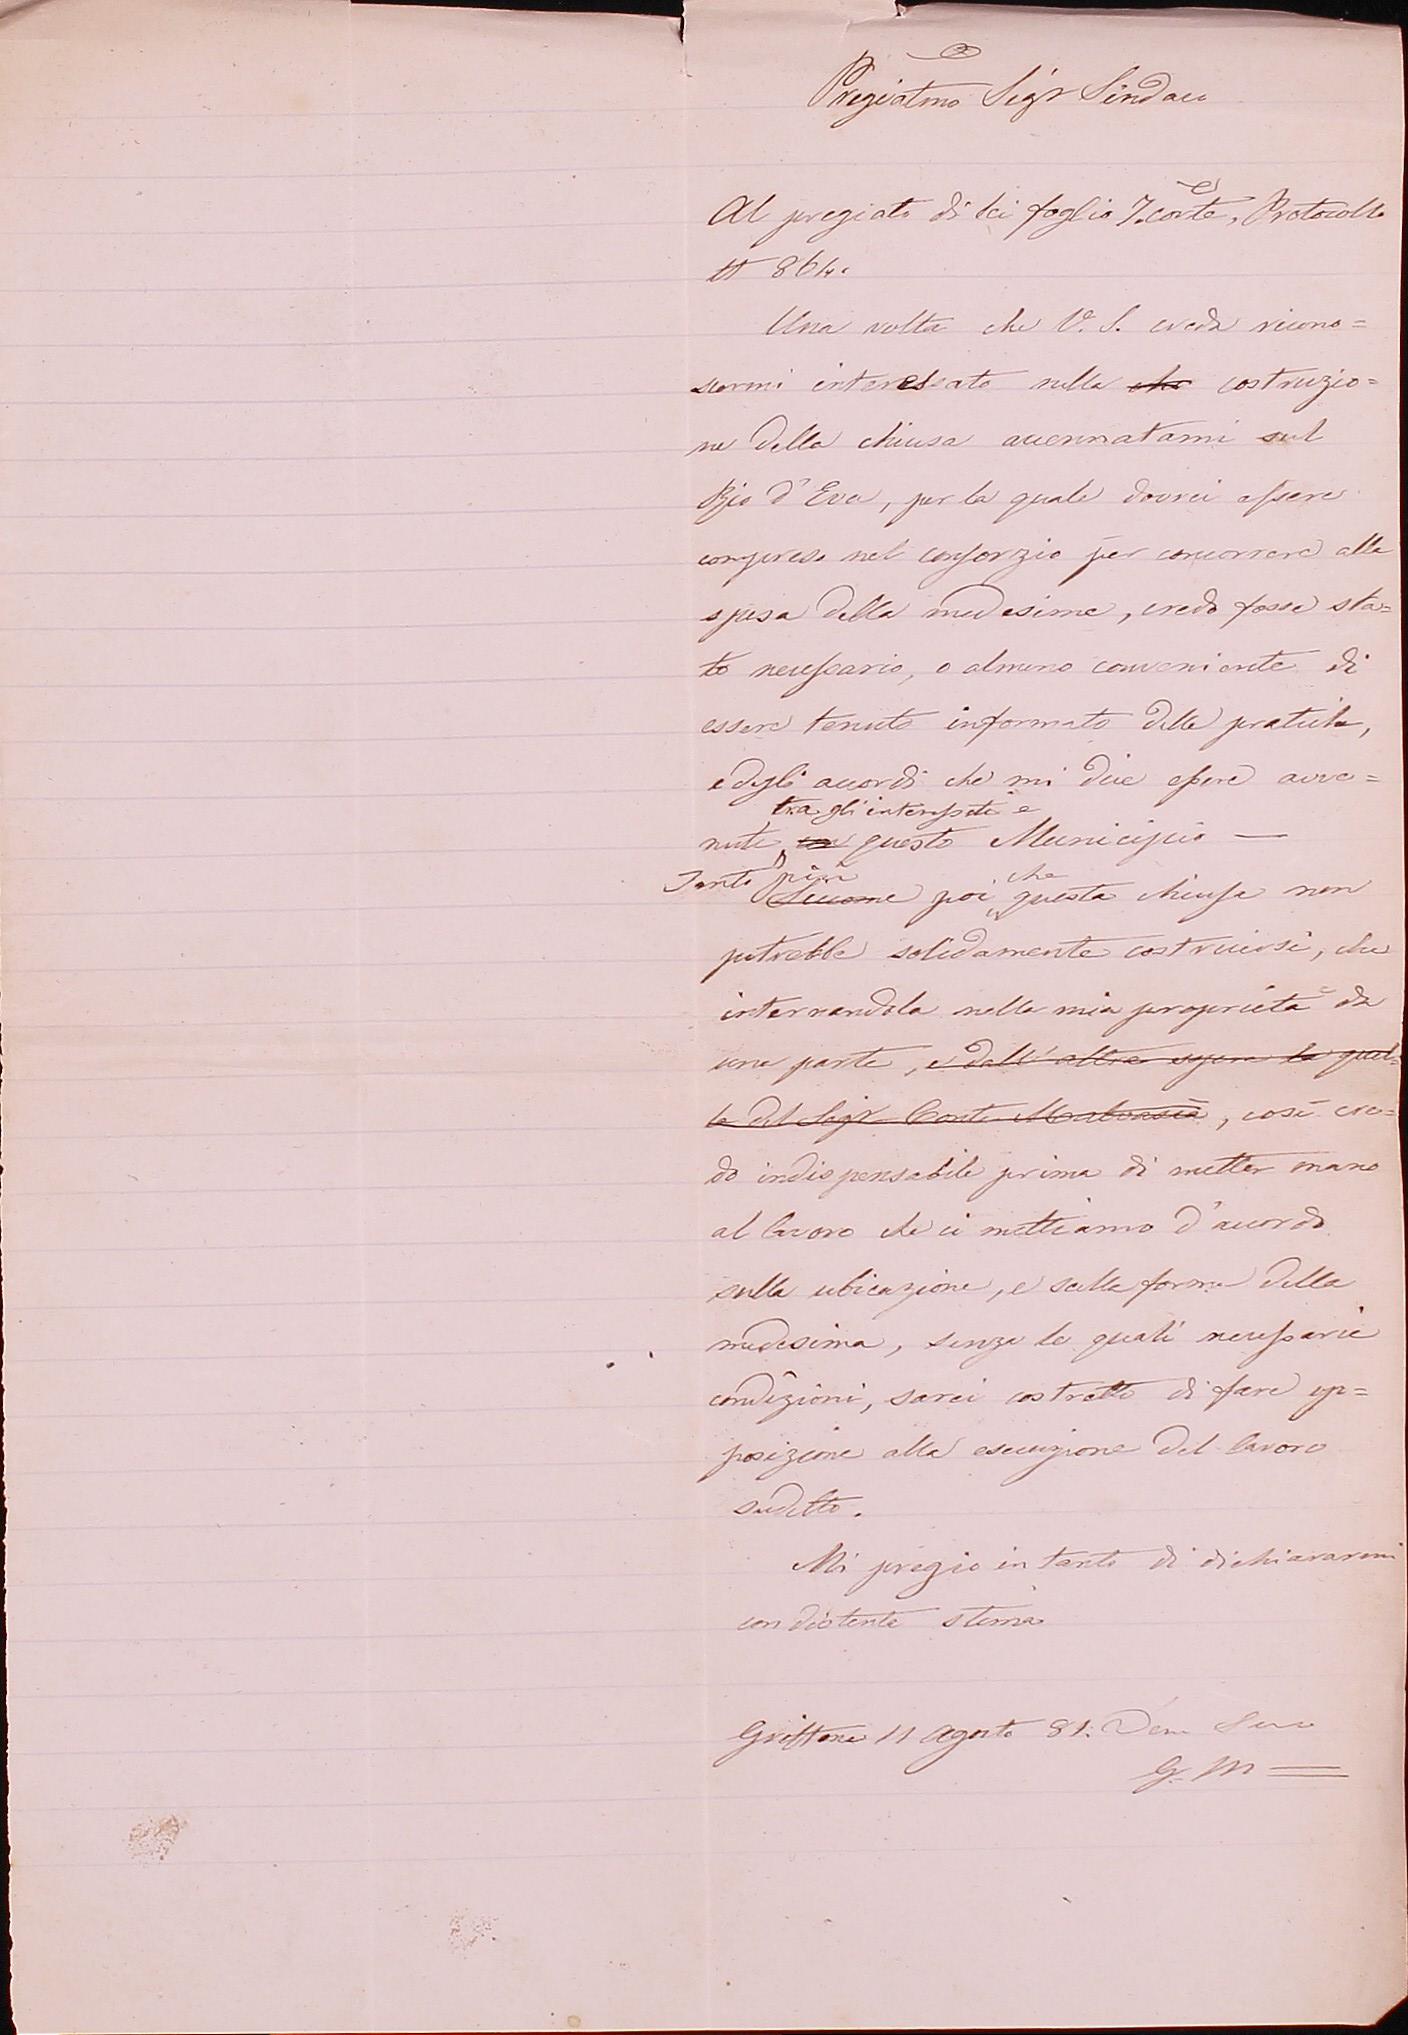 Pregiatmo Sigr Sindaco
Al pregiato di Lei foglio 7. corte, Protocollo
N 864.
Una volta che V. S. creda ricono=
scermi interessato nella che costruzio=
ne della chiusa accennatami sul
Rio d'Eva, per la quale dovrei essere
compreso nel consorzio per concorrere alla
spesa della medesima, credo fosse sta=
to necessario, o almeno conveniente di
essere tenuto informato delle pratiche,
e degli accordi che mi dice essere avve=
tra gli interessati e
nuti con questo Municipio —
Tanto più che
Siccome poi questa chiusa non
potrebbe solidamente costruirsi, che
internandola nella mia proprietà da
una parte, e dall'altra sopra la quel=
la del Sigr Conte Malvasia, così cre=
do indispensabile prima di metter mano
al lavoro che ci mettiamo d'accordo
sulla ubicazione, e sulla forma della
medesima, senza le quali necessarie
condizioni, sarei costretto di fare op=
posizione alla esecuzione del lavoro
sudetto.
Mi pregio intanto di dichiararmi
con distinta stima
Griffone 11 Agosto 81.
G. M